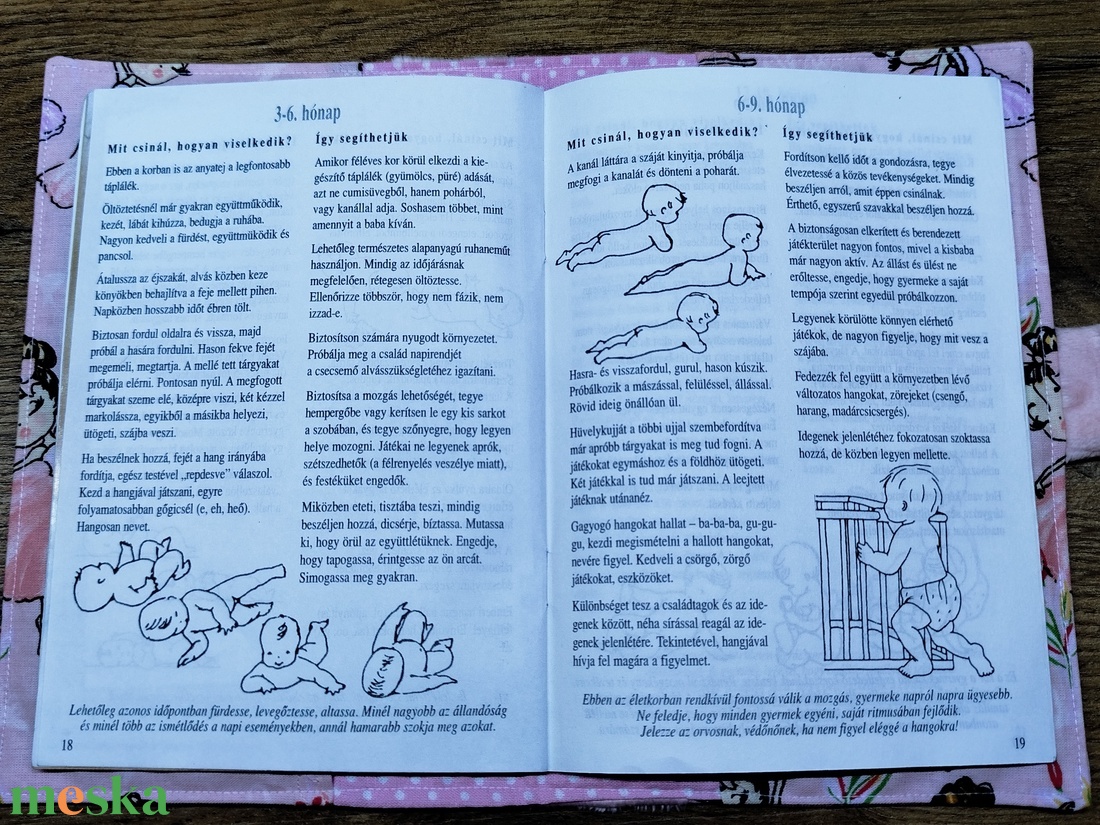 3-6. hónap
Mit csinál, hogyan viselkedik?
Ebben a korban is az anyatej a legfontosabb
táplálék.
Öltöztetésnél már gyakran együttműködik,
kezét, lábát kihúzza, bedugja a ruhába.
Nagyon kedveli a fürdést, együttmüködik és
pancsol.
Átalussza az éjszakát, alvás közben keze
könyökben behajlítva a feje mellett pihen.
Napközben hosszabb időt ébren tölt.
Biztosan fordul oldalra és vissza, majd
próbál a hasára fordulni. Hason fekve fejét
megemeli, megtartja. A mellé tett tárgyakat
próbálja elérni. Pontosan nyúl. A megfogott
tárgyakat szeme elé, középre viszi, két kézzel
markolássza, egyikből a másikba helyezi,
ütögeti, szájba veszi.
Ha beszélnek hozzá, fejét a hang irányába
fordítja, egész testével „repdesve” válaszol.
Kezd a hangjával játszani, egyre
folyamatosabban gőgicsél (e, eh, heő).
Hangosan nevet.
Így segíthetjük
Amikor féléves kor körül elkezdi a kie-
gészítő táplálék (gyümölcs, püré) adását,
azt ne cumisüvegből, hanem pohárból,
vagy kanállal adja. Soshasem többet, mint
amennyit a baba kíván.
Lehetőleg természetes alapanyagú ruhaneműt
használjon. Mindig az időjárásnak
megfelelően, rétegesen öltöztesse.
Ellenőrizze többször, hogy nem fázik, nem
izzad-e.
Biztosítson számára nyugodt környezetet.
Próbálja meg a család napirendjét
a csecsemő alvásszükségletéhez igazítani.
Biztosítsa a mozgás lehetőségét, tegye
hempergőbe vagy kerítsen le egy kis sarkot
a szobában, és tegye szőnyegre, hogy legyen
helye mozogni. Játékai ne legyenek aprók,
szétszedhetők (a félrenyelés veszélye miatt),
és festéküket engedők.
Miközben eteti, tisztába teszi, mindig
beszéljen hozzá, dicsérje, bíztassa. Mutassa
ki, hogy örül az együttlétüknek. Engedje,
hogy tapogassa, érintgesse az ön arcát.
Simogassa meg gyakran.
Lehetőleg azonos időpontban fürdesse, levegőztesse, altassa. Minél nagyobb az állandóság
és minél több az ismétlődés a napi eseményekben, annál hamarabb szokja meg azokat.
18
6-9. hónap
Mit csinál, hogyan viselkedik?
A kanál láttára a száját kinyitja, próbálja
megfogi a kanalát és dönteni a poharát.
Hasra- és visszafordul, gurul, hason kúszik.
Próbálkozik a mászással, felüléssel, állással.
Rövid ideig önállóan ül.
Hüvelykujját a többi ujjal szembefordítva
már apróbb tárgyakat is meg tud fogni. A
játékokat egymáshoz és a földhöz ütögeti.
Két játékkal is tud már játszani. A leejtett
játéknak utánanéz.
Gagyogó hangokat hallat – ba-ba-ba, gu-gu-
gu, kezdi megismételni a hallott hangokat,
nevére figyel. Kedveli a csörgő, zörgő
játékokat, eszközöket.
Különbséget tesz a családtagok és az ide-
genek között, néha sírással reagál az ide-
genek jelenlétére. Tekintetével, hangjával
hívja fel magára a figyelmet.
Így segíthetjük
Fordítson kellő időt a gondozásra, tegye
élvezetessé a közös tevékenységeket. Mindig
beszéljen arról, amit éppen csinálnak.
Érthető, egyszerű szavakkal beszéljen hozzá.
A biztonságosan elkerített és berendezett
játékterület nagyon fontos, mivel a kisbaba
már nagyon aktív. Az állást és ülést ne
erőltesse, engedje, hogy gyermeke a saját
tempója szerint egyedül próbálkozzon.
Legyenek körülötte könnyen elérhető
játékok, de nagyon figyelje, hogy mit vesz a
szájába.
Fedezzék fel együtt a környezetben lévő
változatos hangokat, zörejeket (csengő,
harang, madárcsicsergés).
Idegenek jelenlétéhez fokozatosan szoktassa
hozzá, de közben legyen mellette.
Ebben az életkorban rendkívül fontossá válik a mozgás, gyermeke napról napra ügyesebb.
Ne feledje, hogy minden gyermek egyéni, saját ritmusában fejlődik.
Jelezze az orvosnak, védőnőnek, ha nem figyel eléggé a hangokra!
19
meska